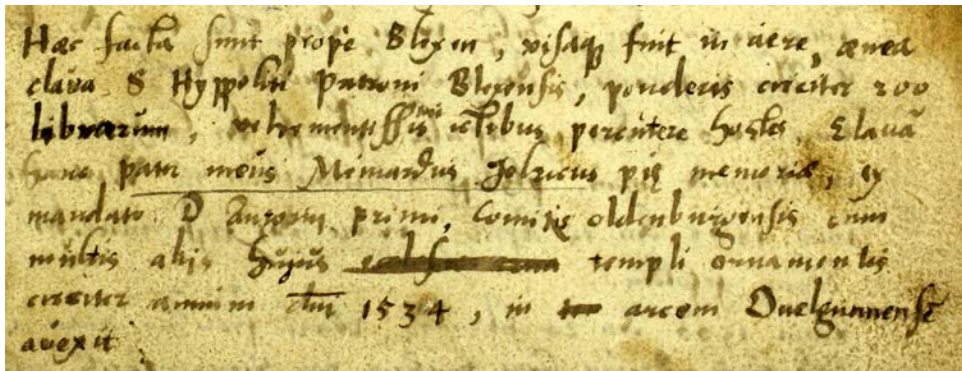 Hæc facta sunt prope Blexen, visaq fuit in aere, ænea
clava S Hyppoliti Patroni Blexensis, ponderis circiter 200
librarum, vehementissimis ictibus percutere hostes. Clavā
hanc pater meus Meinardus Jolricus pię memoriæ, ex
mandato D Antonij primi, Comitis oldenburgensis cum
multis alijs hujus templi ornamentis
circiter annum dñi 1534, in arcem Ovelgunnensē
avexit